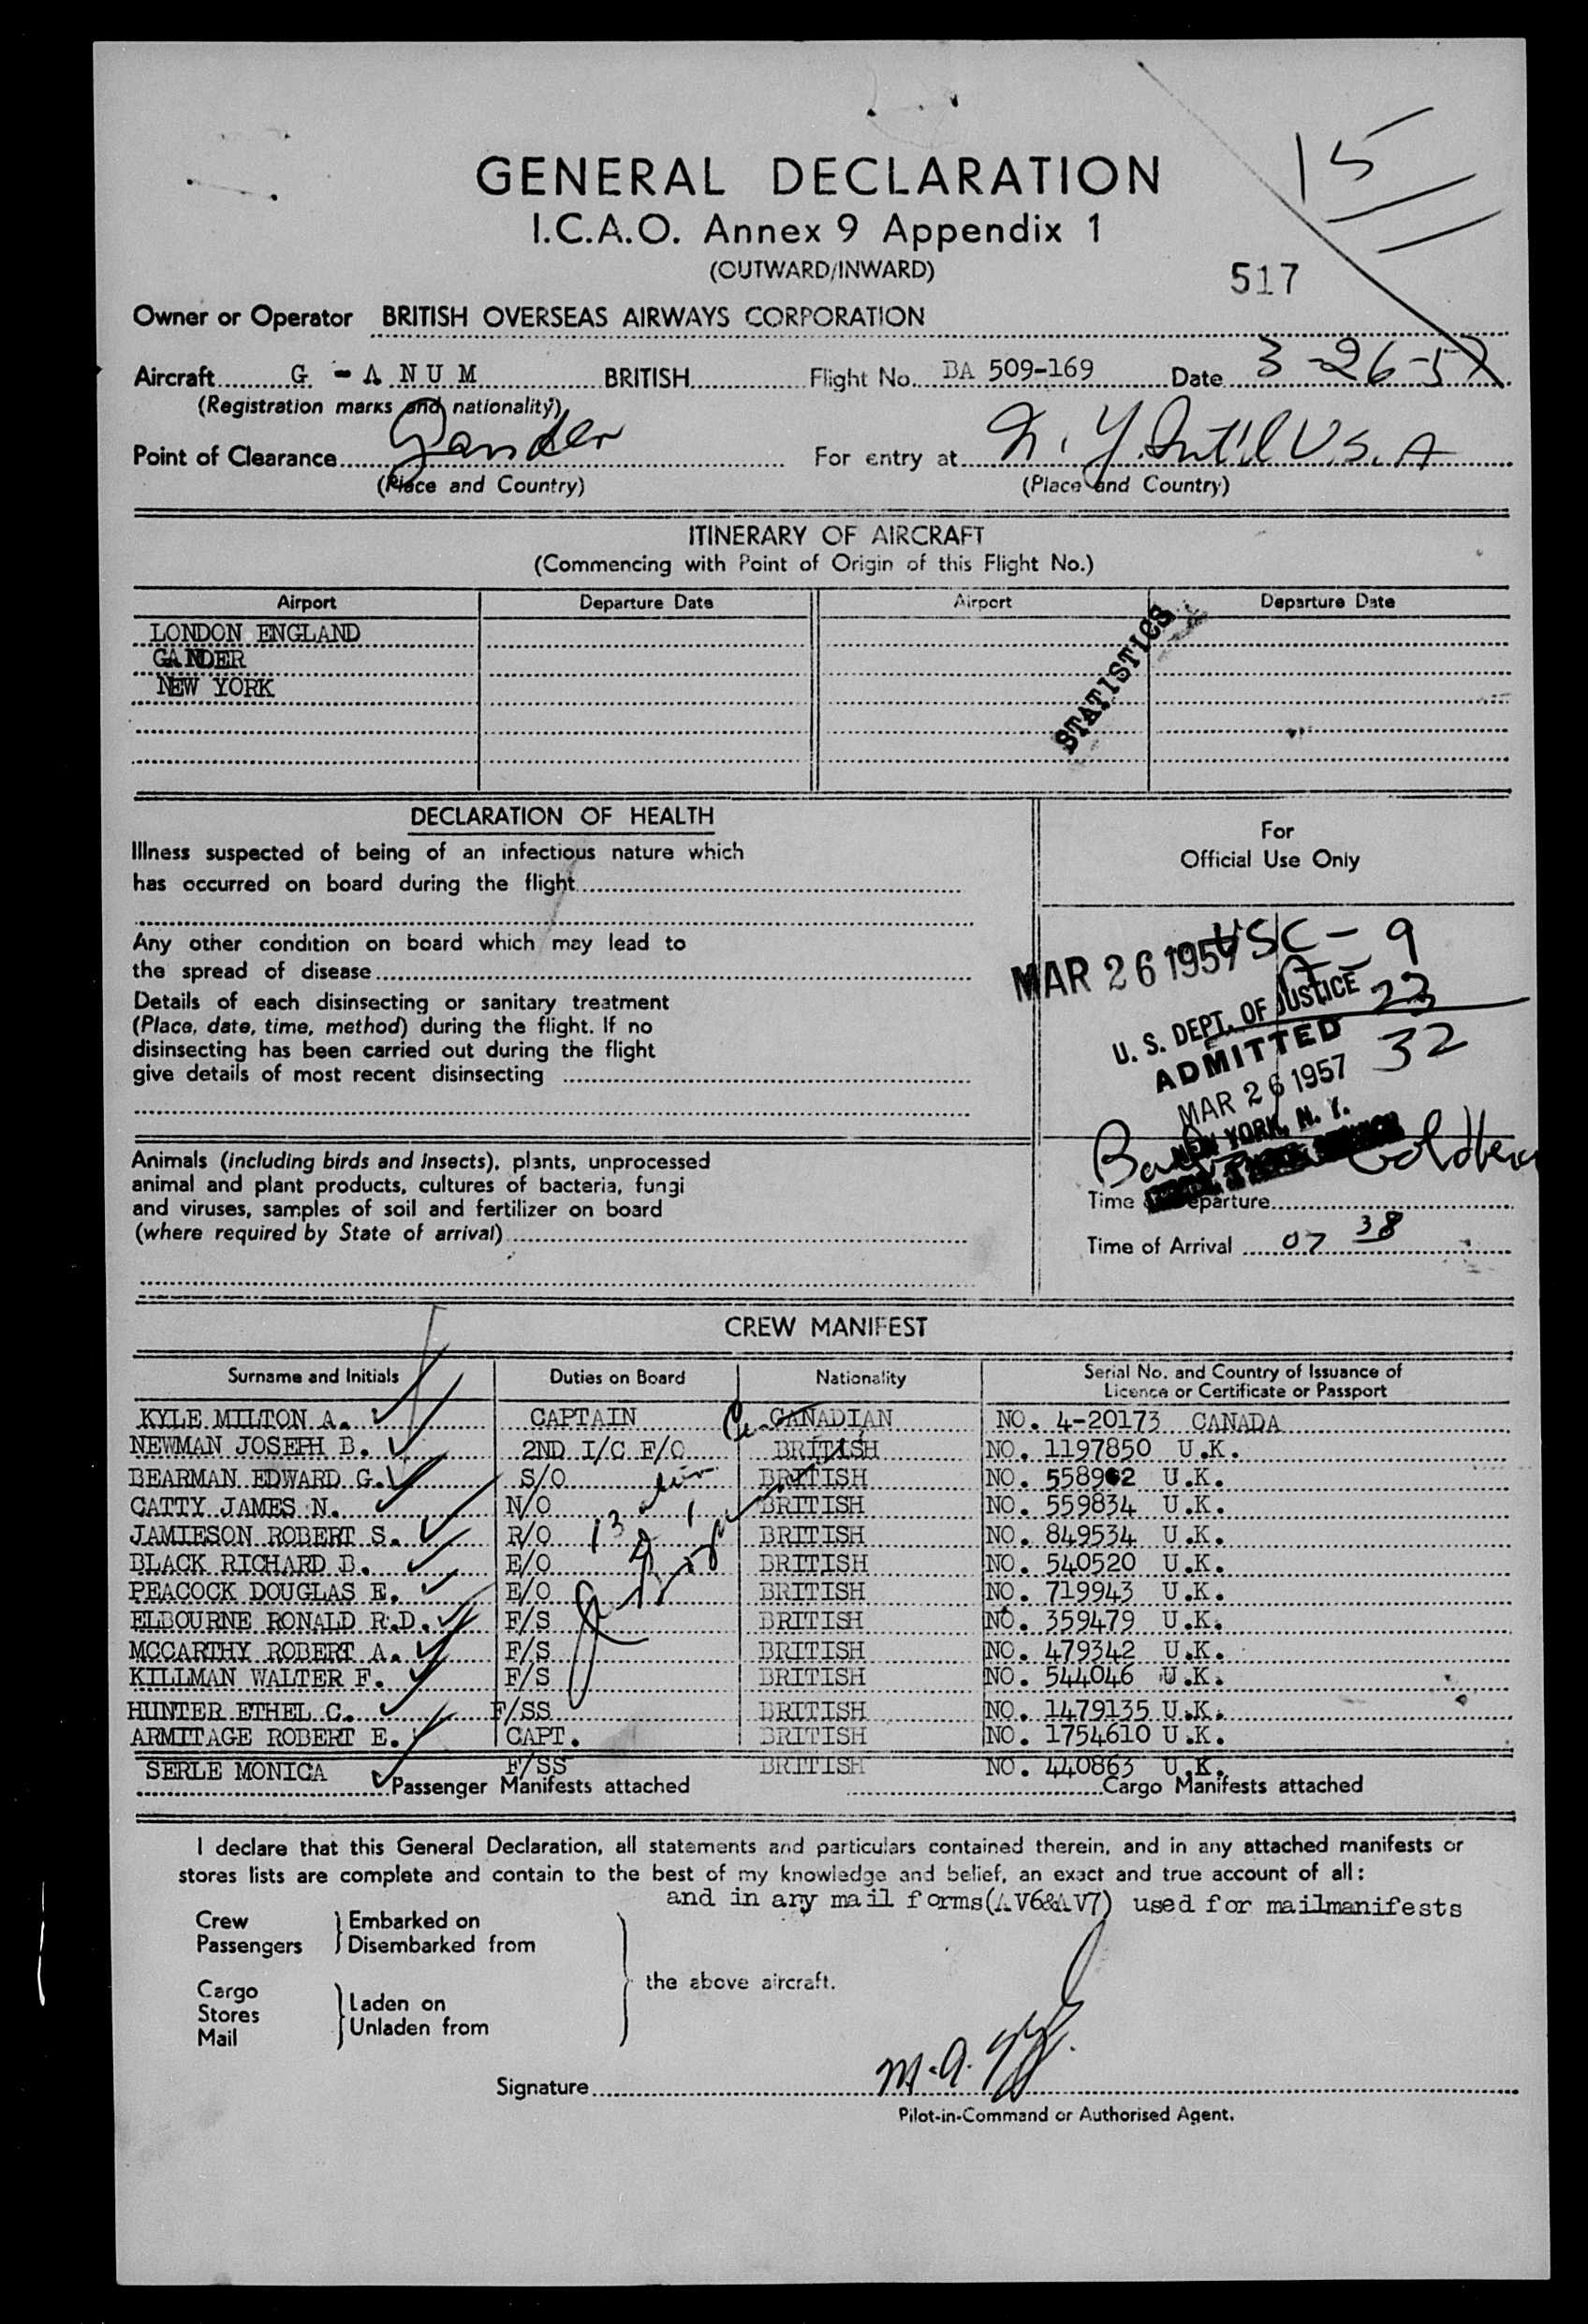 15
GENERAL DECLARATION
I.C.A.O. Annex 9 Appendix 1
(OUTWARD/INWARD)
517
Owner or Operator BRITISH OVERSEAS AIRWAYS CORPORATION
Aircraft G - A N U M BRITISH Flight No. BA 509-169 Date 3-26-57
(Registration marks and nationality)
Point of Clearance Gander For entry at N.Y. Int'l U.S.A
(Place and Country) (Place and Country)
ITINERARY OF AIRCRAFT
(Commencing with Point of Origin of this Flight No.)
Airport Departure Date Airport Departure Date
LONDON ENGLAND
GANDER
NEW YORK
STATISTICS
DECLARATION OF HEALTH
Illness suspected of being of an infectious nature which
has occurred on board during the flight
Any other condition on board which may lead to
the spread of disease
Details of each disinsecting or sanitary treatment
(Place, date, time, method) during the flight. If no
disinsecting has been carried out during the flight
give details of most recent disinsecting
For
Official Use Only
USC - 9
MAR 26 1957
A - 23
U. S. DEPT. OF JUSTICE
ADMITTED
32
MAR 26 1957
NEW YORK, N. Y.
Goldberg
Animals (including birds and insects), plants, unprocessed
animal and plant products, cultures of bacteria, fungi
and viruses, samples of soil and fertilizer on board
(where required by State of arrival)
Time of Departure
Time of Arrival 07 38
CREW MANIFEST
Surname and Initials Duties on Board Nationality Serial No. and Country of Issuance of
Licence or Certificate or Passport
KYLE MILTON A. CAPTAIN CANADIAN NO. 4-20173 CANADA
NEWMAN JOSEPH B. 2ND I/C F/O BRITISH NO. 1197850 U.K.
BEARMAN EDWARD G. S/O BRITISH NO. 558962 U.K.
CATTY JAMES N. N/O BRITISH NO. 559834 U.K.
JAMIESON ROBERT S. R/O BRITISH NO. 849534 U.K.
BLACK RICHARD B. E/O BRITISH NO. 540520 U.K.
PEACOCK DOUGLAS E. E/O BRITISH NO. 719943 U.K.
ELBOURNE RONALD R.D. F/S BRITISH NO. 359479 U.K.
MCCARTHY ROBERT A. F/S BRITISH NO. 479342 U.K.
KILLMAN WALTER F. F/S BRITISH NO. 544046 U.K.
HUNTER ETHEL C. F/SS BRITISH NO. 1479135 U.K.
ARMITAGE ROBERT E. CAPT. BRITISH NO. 1754610 U.K.
SERLE MONICA F/SS BRITISH NO. 440863 U.K.
13
Passenger Manifests attached Cargo Manifests attached
I declare that this General Declaration, all statements and particulars contained therein, and in any attached manifests or
stores lists are complete and contain to the best of my knowledge and belief, an exact and true account of all:
and in any mail forms(AV6&AV7) used for mailmanifests
Crew Embarked on
Passengers Disembarked from
the above aircraft.
Cargo
Stores Laden on
Mail Unladen from
Signature M.A. Kyle
Pilot-in-Command or Authorised Agent.